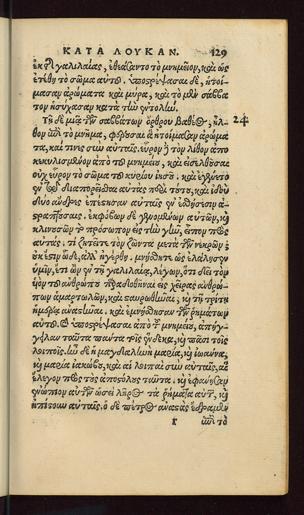 ΚΑΤΑ ΛΟΥΚΑΝ. 129
ἐκ τ̃ Γαλιλαίας, ἐθεάσαντο τὸ μνημεῖον, καὶ ὡς
ἐτέθη τὸ σῶμα αὐτοῦ. ὑποστρέψασαι δὲ, ἡτοί-
μασαν ἀρώματα καὶ μύρα, καὶ τὸ μὲν σάββα
τον ἡσύχασαν κατὰ τὴν ἐντολήν.
Τῇ δὲ μιᾷ τῶν σαββάτων ὄρθρου βαθέος, ἦλ- 24
θον ἐπὶ τὸ μνῆμα, φέρουσαι ἃ ἡτοίμασαν ἀρώμα
τα, καί τινες σὺν αὐταῖς. εὗρον ἢ τὸν λίθον ἀπο
κεκυλισμένον ἀπὸ τοῦ μνημείου, καὶ εἰσελθοῦσαι
οὐχ εὗρον τὸ σῶμα τοῦ κυρίου ἰησοῦ. καὶ ἐγένετο
ἐν τῷ διαπορεῖσθαι αὐτὰς περὶ τούτου, καὶ ἰδοὺ
δύο ἄνδρες ἐπέστησαν αὐταῖς ἐν ἐσθήσεσιν ἀ-
στραπτούσαις. ἐμφόβων δὲ γενομένων αὐτῶν, καὶ
κλινουσῶν τὸ πρόσωπον εἰς τὴν γῆν, εἶπον πρὸς
αὐτάς. τί ζητεῖτε τὸν ζῶντα μετὰ τῶν νεκρῶν;
οὐκ ἔστιν ὧδε, ἀλλ' ἠγέρθη. μνήσθητε ὡς ἐλάλησεν
ὑμῖν, ἔτι ὢν ἐν τῇ γαλιλαίᾳ, λέγων, ὅτι δεῖ τὸν
υἱὸν τοῦ ἀνθρώπου παραδοθῆναι εἰς χεῖρας ἀνθρώ-
πων ἁμαρτωλῶν, καὶ σταυρωθῆναι, καὶ τῇ τρίτῃ
ἡμέρᾳ ἀναστῆναι. καὶ ἐμνήσθησαν τῶν ῥημάτων
αὐτοῦ. καὶ ὑποστρέψασαι ἀπὸ τοῦ μνημείου, ἀπήγ-
γειλαν ταῦτα πάντα τοῖς ἕνδεκα, καὶ πᾶσι τοῖς
λοιποῖς. ἦν δὲ ἡ μαγδαλινὴ μαρία, καὶ ἰωάννα,
καὶ μαρία ἰακώβου, καὶ αἱ λοιπαὶ σὺν αὐταῖς, αἳ
ἔλεγον πρὸς τοὺς ἀποστόλους ταῦτα. καὶ ἐφάνησαν
ἐνώπιον αὐτῶν ὡσεὶ λῆρος τὰ ῥήματα αὐτῶν, καὶ
ἠπίστουν αὐταῖς. ὁ δὲ πέτρος ἀναστὰς ἔδραμεν
r ἐπὶ τὸ